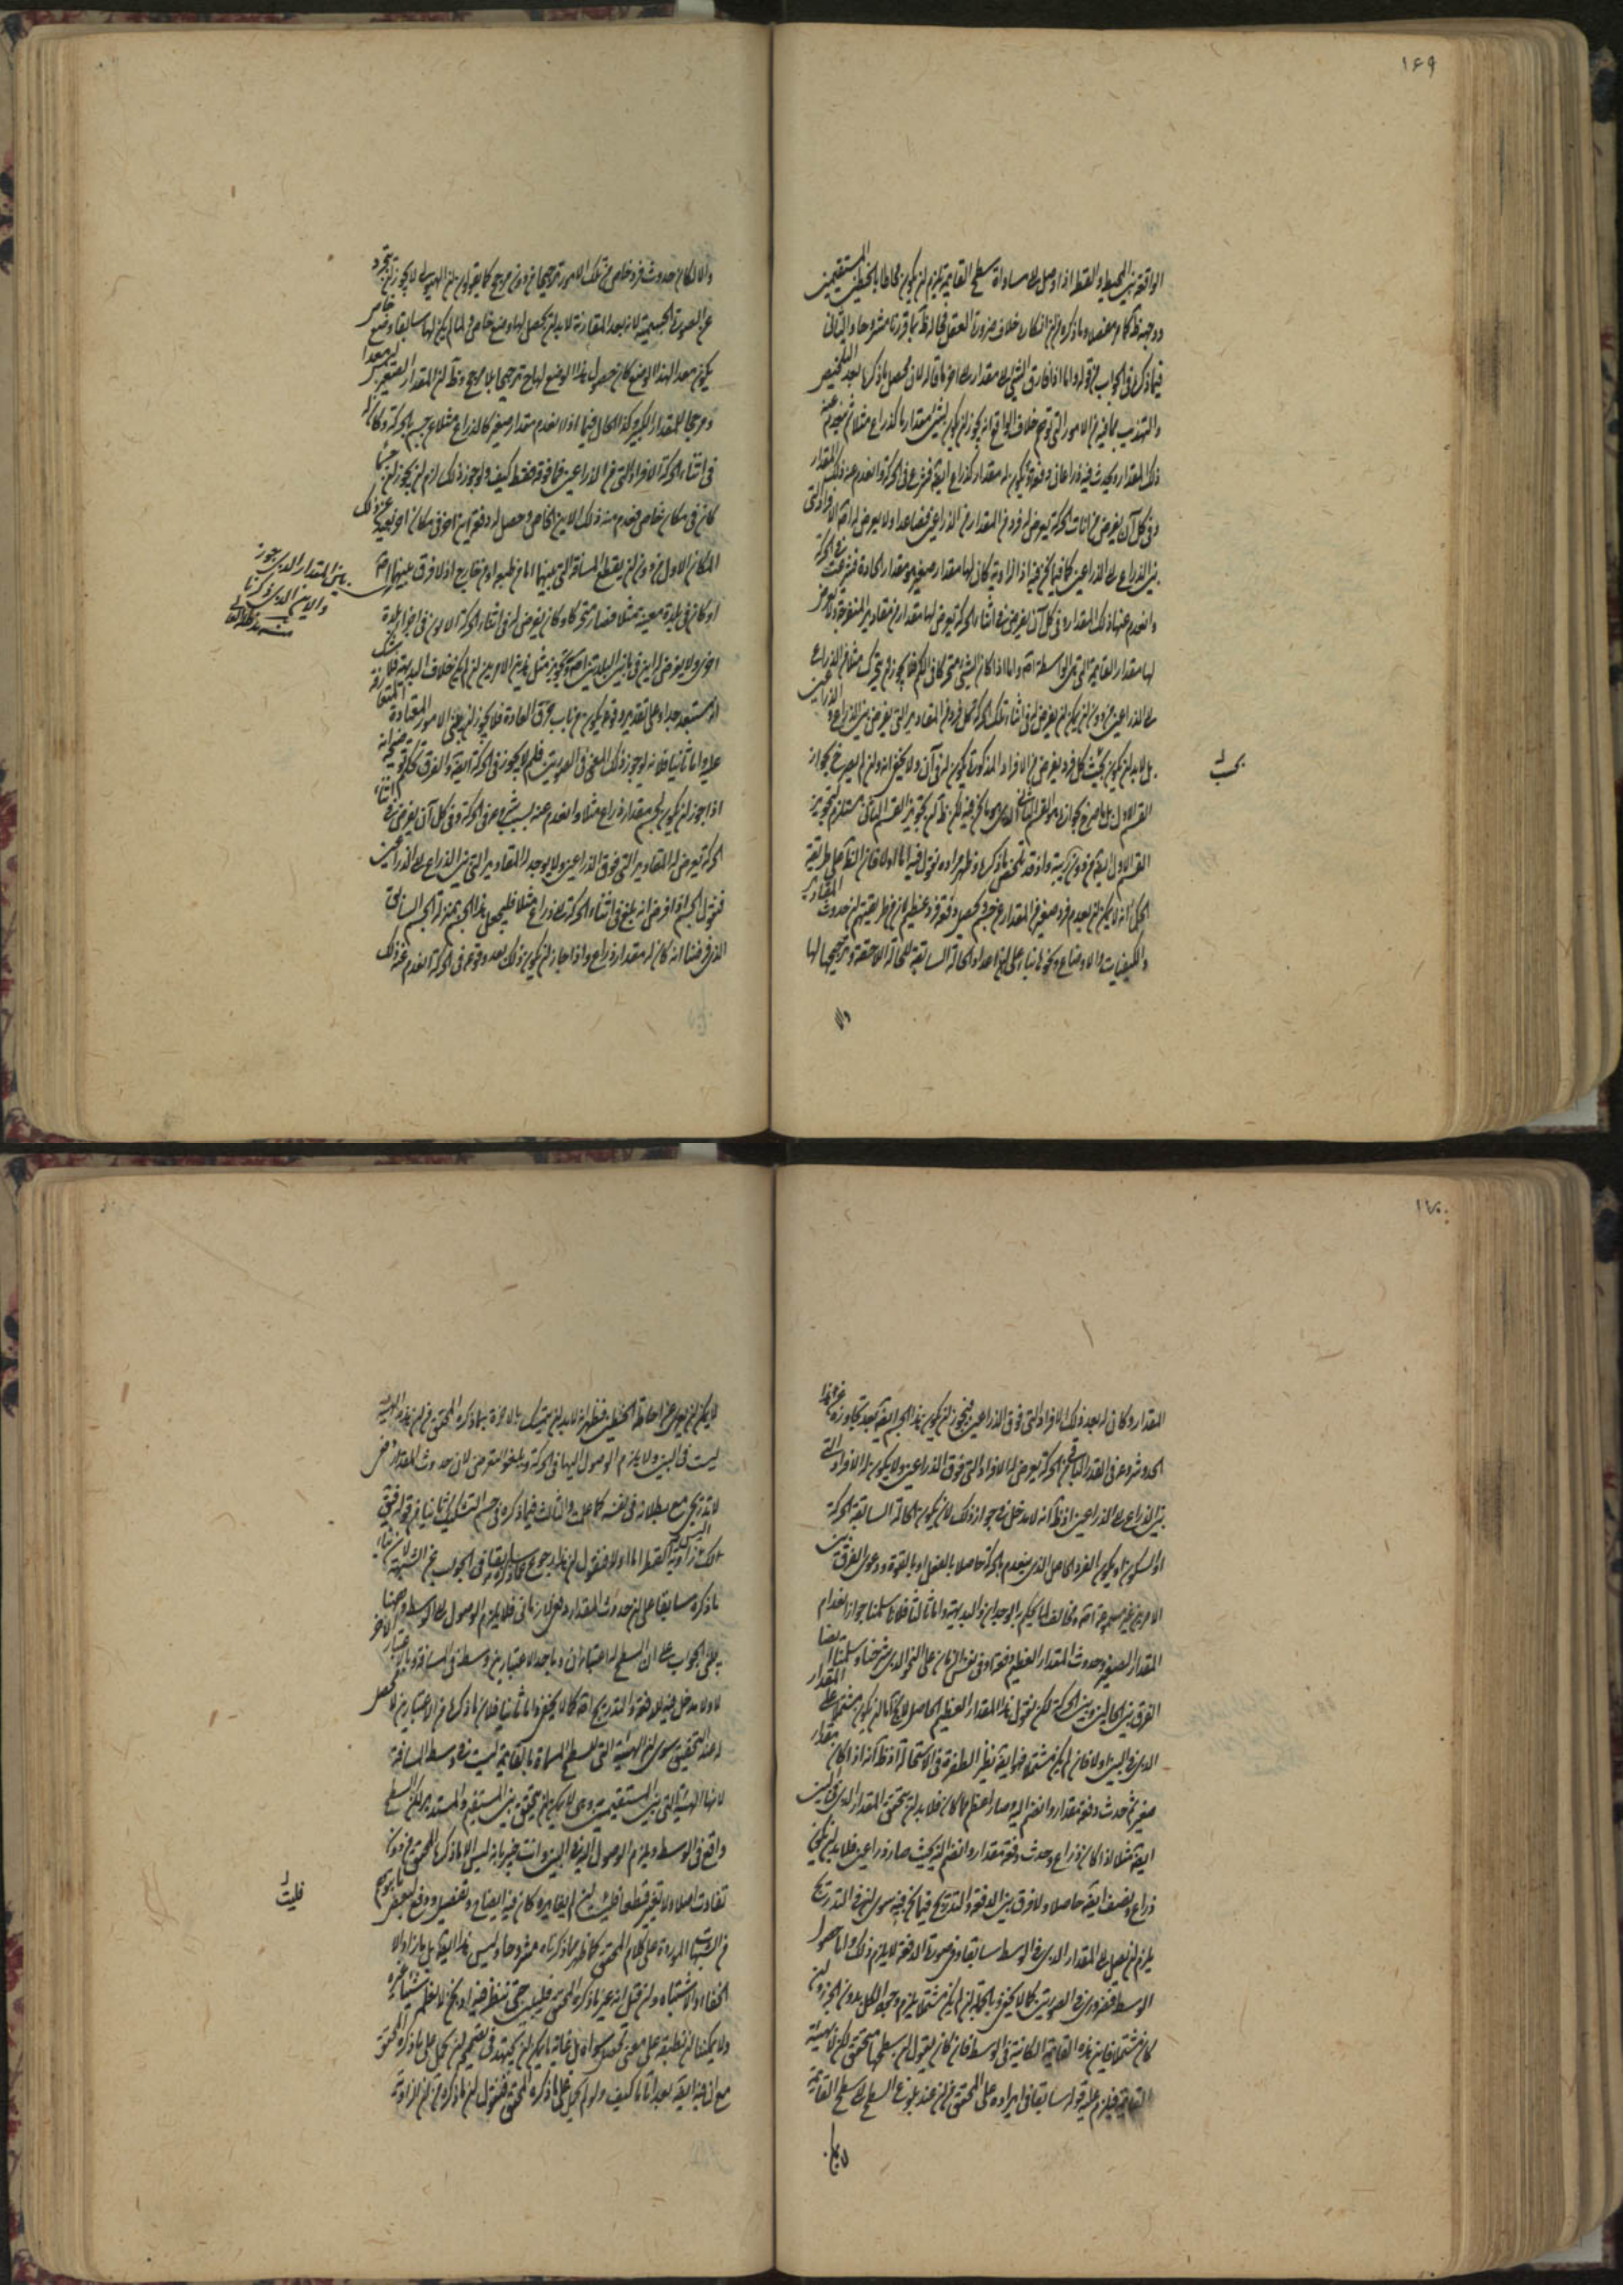 ١٦٩
الواقعة بين المحيط والقطر اذا وصل الى مساواة سطح القائمة يلزم ان يكون محاطا بالخطين المستقيمين
ووجهه ظ كما مر مفصلا وما ذكره من ان انكاره خلاف ضرورة العقل فحاله ظ مما قررنا مشروحا والثاني
فيما ذكره في الجواب من قوله واما اذا فارق الشيء مقدار الى اخر ما قاله لان محصل ما ذكره بعد التلخيص
والتهذيب عما فيه من الامور التي توهم خلاف الواقع انه يجوز ان يكون لشيء مقدار ما كذراع مثلا ثم ينعدم عنه
ذلك المقدار ويحدث فيه ذراعان دفعة ويكون له مقدار كذراع ايضا فشرع في الحركة وانعدم عنه ذلك المقدار
وفي كل آن يفرض من آنات الحركة يعرض له فرد من المقدار من الذراعين فصاعدا ولا يعرض له اصلا الافراد التي
بين الذراع الى الذراعين كما فيما نحن فيه اذ الزاوية كان لها مقدار صغير هو مقدار الحادة فشرعت في الحركة
وانعدم عنها ذلك المقدار وفي كل آن يفرض في اثناء الحركة يعرض لها مقدار من مقادير المنفرجة ولا يعرض
لها مقدار القائمة التي هي الواسطة اصلا واما اذا كان الشيء متحركا في الكم فلا يجوز ان يتحرك مثلا من الذراع
الى الذراعين من دون ان يمكن ان يفرض له في اثناء تلك الحركة كل فرد من المقادير التي يفرض بين الذراع والذراعين
بل لا بد ان يكون بحيث كل فرد يفرض من الافراد المذكورة يكون له في آن ولا يخفى انه وان لم يصرح بجواز
بحث
القسم الاول بل ما صرح بجوازه هو القسم الثاني الذي هو ما نحن فيه لكن ظ ان تجويز القسم الثاني مستلزم لتجويز
القسم الاول ايضا من دون ريبة واذ قد تلخص ما ذكره وظهر مراده نقول فيه اما اولا فان الظ على طريقة
الحكماء انه لا يمكن ان ينعدم فرد صغير من المقدار عن جسم ويحصل دفعة فرد عظيم لان من طريقتهم ان حدوث المقادير
والكيفيات والاوضاع ونحوها بناء على اعداد الحالة السابقة للحالة اللاحقة وترجيحها لها
والا
والا لكان حدوث فرد خاص من تلك الامور ترجيحا من دون مرجح كما يقولون ان الهيولى لا يجوز ان يتجرد
عن الصورة الجسمية لانه بعد المقارنة لا بد ان يحصل لها وضع خاص ولما لم يكن لها سابقا وضع خاص
يكون معدا لهذا الوضع كان حصول هذا الوضع لها ترجيحا بلا مرجح وظ ان المقدار الصغير ليس معدا
ومرجحا للمقدار الكبير وكذا الحال فيما اذا انعدم مقدار صغير كالذراع مثلا عن جسم بالحركة وكان له
في اثناء الحركة الافراد التي من الذراعين فما فوقه فقط كيف ولو جوز ذلك لزم ان يجوز ان جسما
كان في مكان خاص فعدم منه ذلك الاين الخاص وحصل له دفعة اين اخر في مكان اخر بعيد عن ذلك
المكان الاول من دون ان يقطع المسافة التي بينهما اما من طبع او من خارج اذ لا فرق بينهما اصلا
بين المقدار الذي جوز
والاين الذي ذكرنا
منه مد ظله العالي
او كان في بلدة معينة مثلا فصار متحركا وكان يفرض له في اثناء الحركة الايون في اجواء بلدة
اخرى ولا يعرض له اين في ما بين البلدتين اصلا وتجويز مثل هذين الامرين ان لم يكن خلاف البديهة فلا شك
انه مستبعد جدا وعلى تقدير وقوعه يكون من باب خرق العادة فلا يجوز ان يبنى الامور المعتادة المتعارفة
عليه واما ثانيا فلانه لو جوز ذلك المعنى في الصورتين فلم لا يجوز في الحركة ايضا والفرق تحكم ضرورة انه
اذا جوز ان يكون لجسم مقدار ذراع مثلا وانعدم عنه بسبب شروعه في الحركة وفي كل آن يفرض من اثناء
الحركة يعرض له المقادير التي فوق الذراعين ولا يوجد له المقادير التي بين الذراع الى الذراعين
فنقول الجسم اذا فرض انه بلغ في اثناء الحركة الى ذراع مثلا فليجعل هذا الجسم بمنزلة الجسم السابق
الذي فرضنا انه كان له مقدار ذراع واذا جاز ان يكون ذلك بعد وقوعه في الحركة انعدم عنه ذلك
١٧٠
المقدار وكان له بعد ذلك الافراد التي فوق الذراعين فيجوز ان يكون هذا الجسم ايضا بعد تجاوزه عن هذا
الحد وشروعه في القدر الباقي من الحركة يعرض له الافراد التي فوق الذراعين ولا يكون له الافراد التي
بين الذراع الى الذراعين اذ ظ انه لا مدخل في جواز ذلك لان يكون الحالة السابقة الحركة
او السكون او يكون الفرد الحاصل الذي ينعدم بالحركة حاصلا بالفعل او بالقوة ودعوى الفرق بين
الامرين غير مسموعة اصلا ومخالف لما يحكم به الوجدان والبديهة واما ثالثا فلانا سلمنا جواز انعدام
المقدار الصغير وحدوث المقدار العظيم دفعة وفي نفس الزمان على النحو الذي شرحنا وسلمنا ايضا
الفرق بين الحالين وبين الحركة لكن نقول هذا المقدار العظيم الحاصل لا يخ اما ان يكون مشتملا على المقدار
الذي في البين او لا فان لم يكن مشتملا فهو ايضا نظير الطفرة في الاستحالة اذ ظ انه اذا كان مقدار
صغير ثم حدث دفعة مقدار وانضم اليه وصار اعظم مما كان فلا بد ان يتحقق المقدار الذي في البين
ايضا مثلا اذا كان ذراع وحدث دفعة مقدار وانضم اليه بحيث صار ذراعين فلا بد ان يكون
ذراع ونصف ايضا حاصلا ولا فرق بين الدفعة والتدريج فيما نحن فيه سوى ان في التدريج
يلزم ان يصل الى المقدار الذي في الوسط سابقا وفي صورة الدفعة لا يلزم ذلك واما حصول
الوسط فضروري في الصورتين كما لا يخفى وبالجملة ان لم يكن مشتملا يلزم وجود الكل بدون الجزء وان
كان مشتملا فاين هذه القائمة الكائنة في الوسط فان كان يقول ان سطحها متحقق لكن لا بهيئة
القائمة فيلزم عليه قوله سابقا في ايراده على المحقق من ان عند بلوغ السطح الى سطح القائمة
لا يمكن
لا يمكن ان يعرى عن احاطة الخطين فظهر انه لا بد ان يتمسك بالاخرة بما ذكره المحقق من ان هذه الهيئة
ليست في البين ولا يلزم الوصول اليها في الحركة ويلغو التعرض لان حدوث المقدار دفعي
لا تدريجي مع بطلانه في نفسه كما علمت والثالث فيما ذكره في حسم التشكيك ثانيا من قوله فبقي
تلك زاوية القطر اما اولا فنقول ان هذا رجوع عما ذكره سابقا في الجواب عن الشبهة لان بناء
ما ذكره سابقا على ان حدوث المقدار دفعي لا زماني فلا يلزم الوصول الى الوسط وههنا
بنى الجواب على ان السطح له اعتباران وباحد الاعتبارين وسط في المسافة وبالاعتبار الاخر
لا ولا مدخل فيه للدفعة والتدريج اصلا كما لا يخفى واما ثانيا فلان ما ذكره من الاعتبارين لا محصل
له عند التحقيق سوى ان الهيئة التي للسطح المسماة بالقائمة ليست في وسط المسافة
لانها الهيئة التي بين المستقيمين وهي لا يمكن ان يتحقق بين المستقيم والمستدير لكن السطح
واقع في الوسط ويلزم الوصول اليه في البين وانت خبير بانه ليس الا ما ذكره المحقق من دون
تفاوت اصلا ولا تغير قطعا فليت
فليت
شعري لم يغايره وكان فيه ايضاح وتفصيل ودفع لبعض ما يتوهم
من الشبهات الموردة على كلام المحقق كما ظهر مما ذكرناه مشروحا وليس هذا ايضا بل ما زاد الا
الخفاء والاشتباه وان قيل انه غير ما ذكره المحقق فليبين حتى ننظر فيه اذ نحن لا نفهم شيئا غيره
ولا يمكننا ان نطبقه على معنى محصل سواه بل غاية ما يمكن ان يجتهد في تصحيحه ان يحمل على ما ذكره المحقق
مع ان فيه ايضا بعدا تاما كيف ولو لم يحمل على ما ذكره المحقق فنقول ان ما ذكره من ان الزاوية